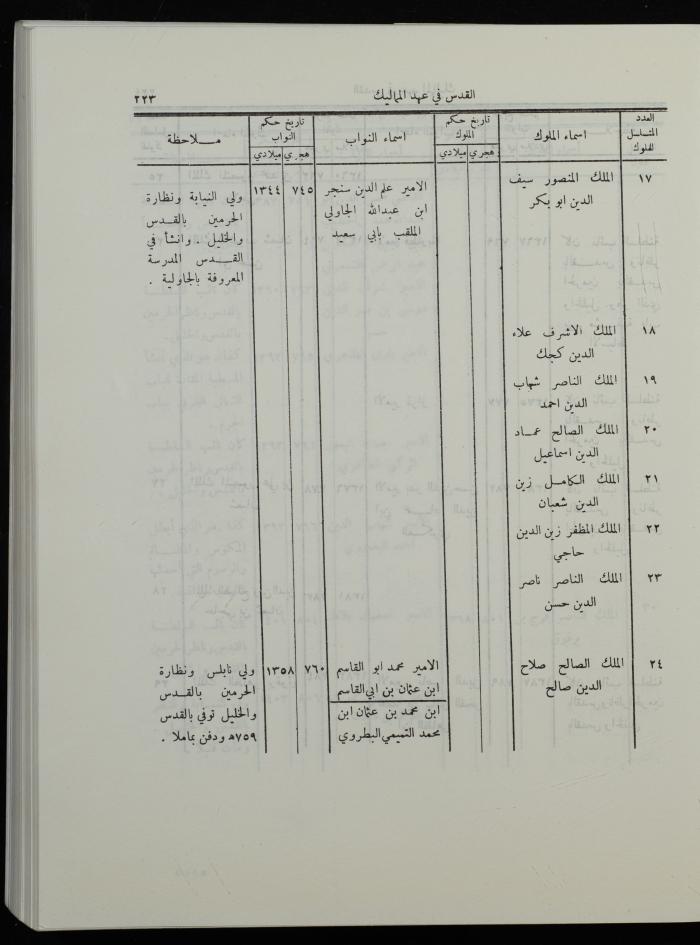 القدس في عهد المماليك
٢٢٣
العدد المتسلسل للملوك
اسماء الملوك
تاريخ حكم الملوك
هجري ميلادي
اسماء النواب
تاريخ حكم النواب
هجري ميلادي
مـــلاحظة
١٧ الملك المنصور سيف
الدين ابو بكر
الامير علم الدين سنجر
ابن عبدالله الجاولي
الملقب بابي سعيد
٧٤٥ ١٣٤٤
ولي النيابة ونظارة
الحرمين بالقدس
والخليل . وانشأ في
القـــدس المدرسة
المعروفة بالجاولية .
١٨ الملك الاشرف علاء
الدين كجك
١٩ الملك الناصر شهاب
الدين احمد
٢٠ الملك الصالح عمـاد
الدين اسماعيل
٢١ الملك الكامـل زين
الدين شعبان
٢٢ الملك المظفر زين الدين
حاجي
٢٣ الملك الناصر ناصر
الدين حسن
٢٤ الملك الصالح صلاح
الدين صالح
الامير محمد ابو القاسم
ابن عثمان بن ابي القاسم
ابن محمد بن عثمان ابن
محمد التميمي البطروي
٧٦٠ ١٣٥٨
ولي نابلس ونظارة
الحرمين بالقدس
والخليل توفي بالقدس
٧٥٩ه ودفن بماملا .